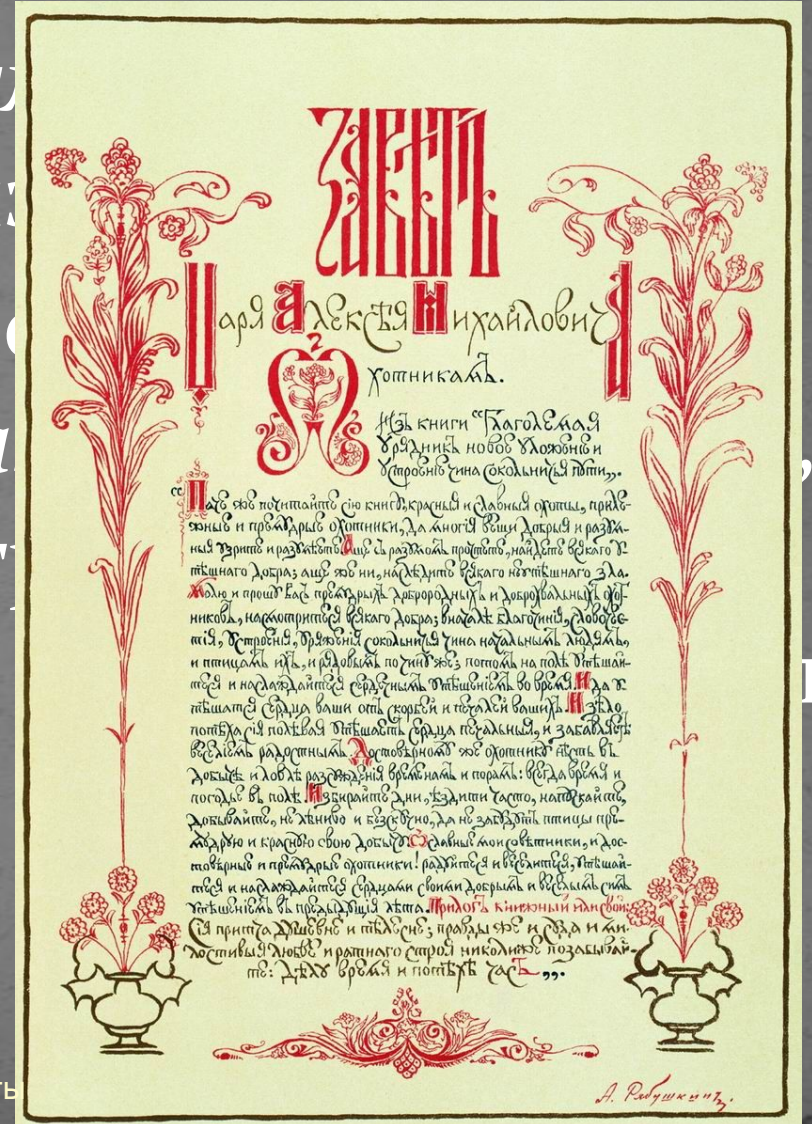 Завѣтъ
Царя Алексѣя Михайловича
Охотникамъ.
Изъ книги “Глаголемая
Урядникъ новое уложенїе и
устроенїе чина сокольничья пути„.
“Паче же почитайте сїю книгу, красныя и славныя охоты, приле-
жные и премудрые охотники, да многїя вещи добрыя и разум-
ныя узрите и разумѣете. Аще съ разумомъ прочтете, найдете всякаго у-
тѣшнаго добра; аще же ни, наслѣдите всякаго неутѣшнаго зла.
Молю и прошу васъ премудрыхъ доброродныхъ и доброхвальныхъ охот-
никовъ, насмотритеся всякаго добра; вначалѣ благочинїя, славочес-
тїя, устроенїя, уряженїя сокольничья чина начальнымъ людямъ,
и птицамъ ихъ, и рядовымъ по чину же; потомъ на полѣ утѣшай-
теся и наслаждайтеся сердечнымъ утѣшенїемъ во время. И да у-
тѣшатся сердца ваши отъ скорбей и печалей вашихъ. И зѣло
потѣха сїя полѣвая утѣшаетъ сердца печальныя, и забавляетъ
веселїемъ радостнымъ. Достовѣрному же охотнику нѣсть въ
добычѣ и ловлѣ разсужденїя временамъ и порамъ: всегда время и
погодье въ полѣ. Избирайте дни, ѣздите часто, напускайте,
добывайте, не лѣниво и безскучно, да не забудутъ птицы пре-
мудрую и красную свою добычу. О славные мои совѣтники, и дос-
товѣрные и премудрые охотники! радуйтеся и веселитеся, утѣшай-
теся и наслаждайтеся сердцами своими добрымъ и веселымъ симъ
утѣшенїемъ въ предыдущїя лѣта. Прилогъ книжный или свой:
Сїя притча душевне и тѣлесне; правды же и суда и ми-
лостивыя любве и ратнаго строя николиже позабывай-
те: дѣлу время и потѣхѣ часъ„.
А. Рябушкинъ